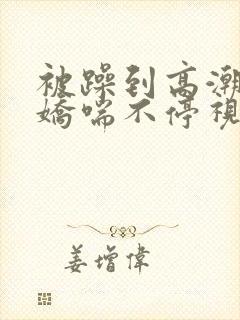 被躁到高潮
嬌喘不停視
姜增偉